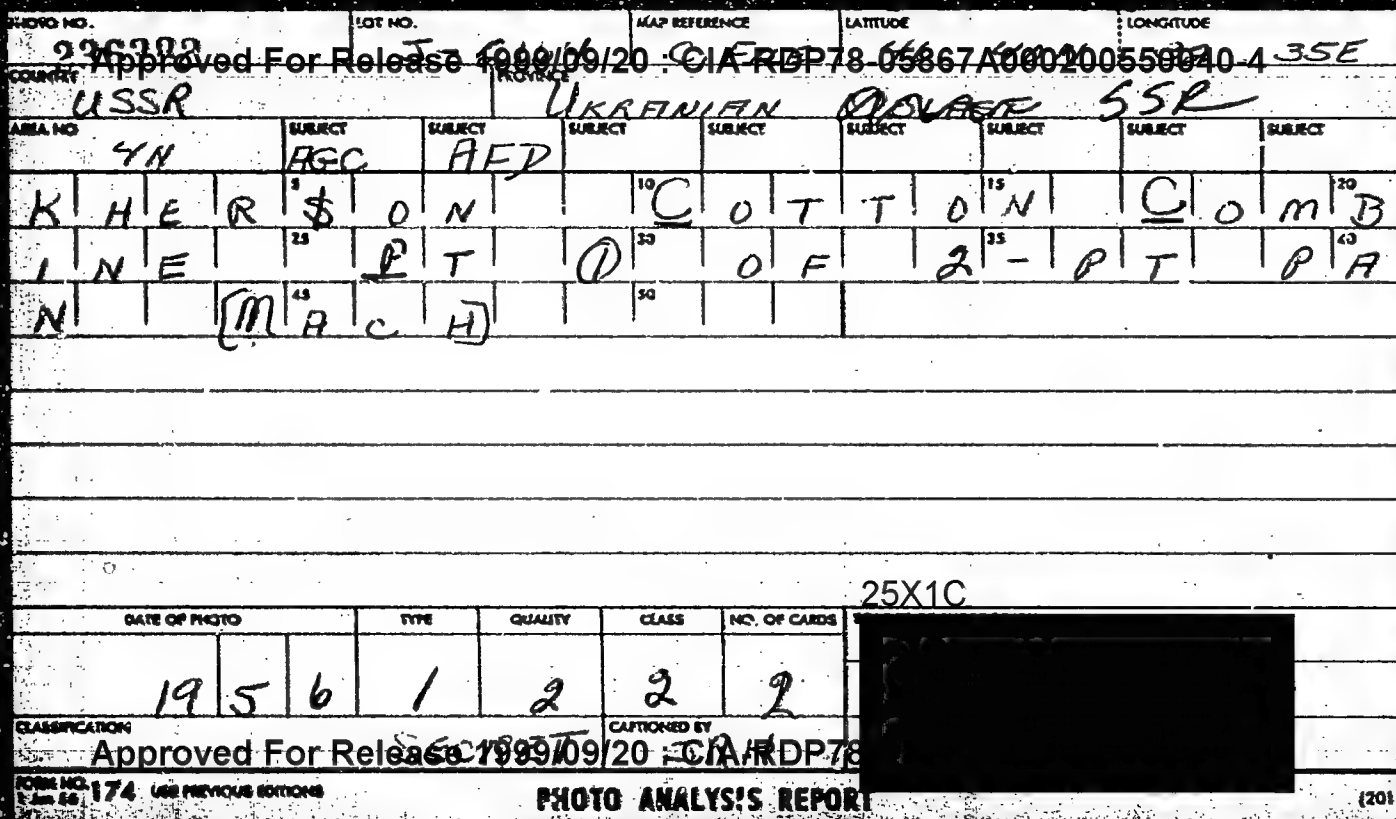 PHOTO NO. LOT NO. MAP REFERENCE LATITUDE LONGITUDE
Approved For Release 1999/09/20 : CIA-RDP78-05867A000200550040-4 35E
COUNTRY PROVINCE
USSR UKRANIAN SSR
AREA NO. SUBJECT SUBJECT SUBJECT SUBJECT SUBJECT SUBJECT SUBJECT SUBJECT
4N AGC AFD
5 10 15 20
KHER$ON COTTON COMB
25 30 35 40
INE PT 1 OF 2-PT PA
45 50
N [MACH]
25X1C
DATE OF PHOTO TYPE QUALITY CLASS NO. OF CARDS
1956 1 2 2 2
CLASSIFICATION CAPTIONED BY
Approved For Release 1999/09/20 : CIA-RDP78
FORM NO. 174 USE PREVIOUS EDITIONS PHOTO ANALYSIS REPORT (20)
1 Jun 56